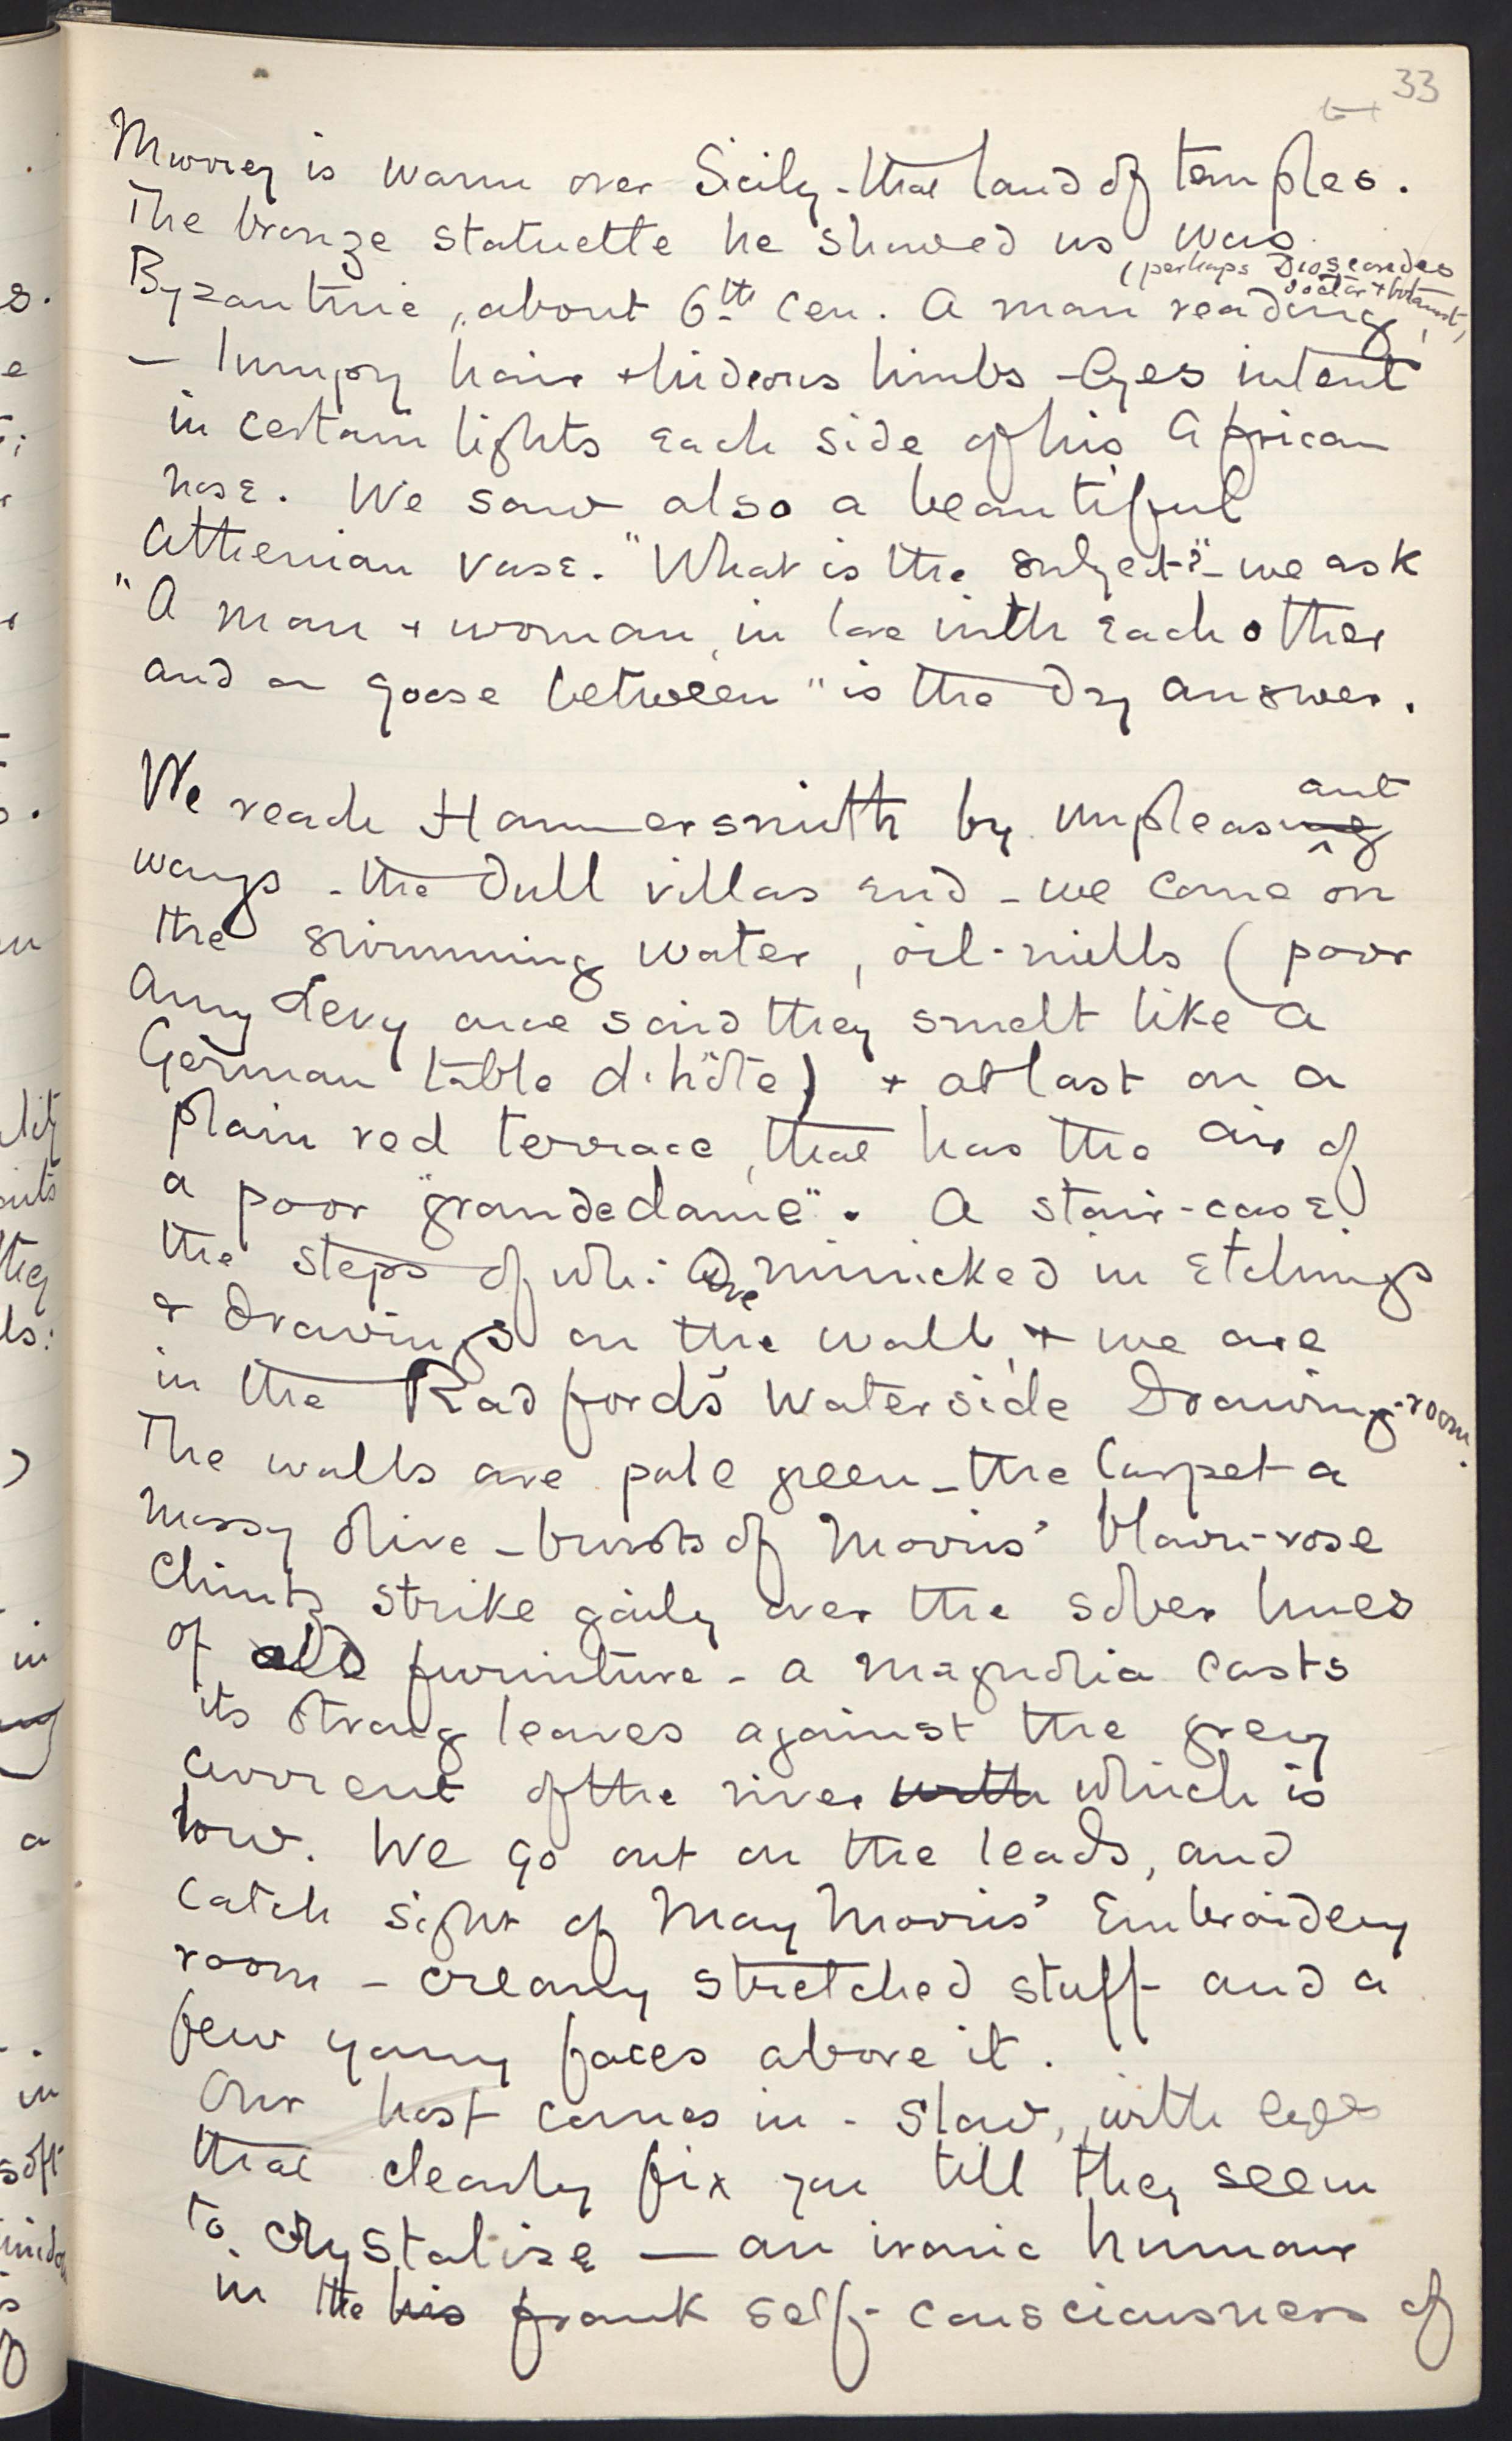 33
Murray is warm over Sicily - that land of temples.
The bronze statuette he showed us was
(perhaps Dioscorides
doctor + botanist,
Byzantine, about 6th Cen. A man reading,
- lumpy hair + hideous limbs - Eyes intent
in certain lights each side of his African
nose. We saw also a beautiful
Athenian vase. "What is the subject?" - we ask
"A man + woman, in love with each other
and a goose between" is the dry answer.
We reach Hammersmith by unpleasing ant
ways - the dull villas end - we come on
the swimming water, oil-mills (poor
Amy Levy once said they smelt like a
German table d'hôte) + at last on a
plain red terrace, that has the air of
a poor "grande dame". A stair-case
the steps of wh: are mimicked in etchings
& drawings on the wall, + we are
in the Radfords' waterside Drawing-room.
The walls are pale green - the Carpet a
mossy olive - bursts of Morris' blair-rose
Chintz strike gaily over the sober hues
of old furniture - a magnolia casts
its strong leaves against the grey
current of the river with which is
low. We go out on the leads, and
catch sight of May Morris' Embroidery
room - creamy stretched stuff and a
few young faces above it.
Our host comes in - slow, with eyes
that clearly fix you till they seem
to crystalise — an ironic humour
in the his frank self-consciousness of